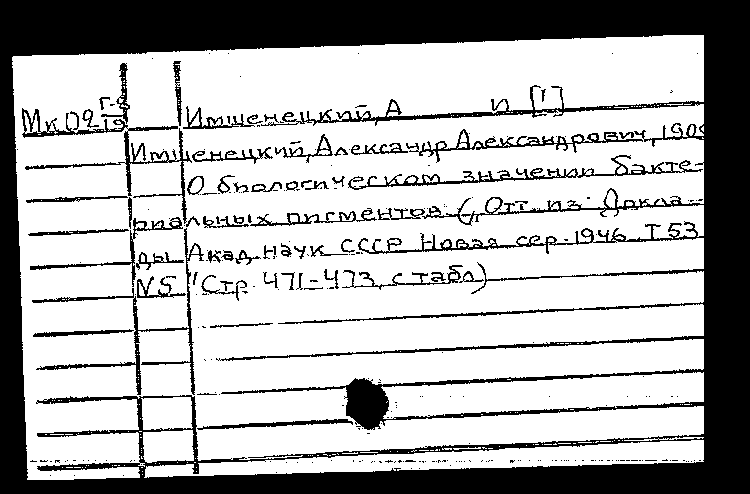 Мк 02 Г-8/19 Имшенецкий, А И [1]
Имшенецкий, Александр Александрович, 1905
О биологическом значении бакте-
риальных пигментов. („Отт. из: Докла-
ды Акад. наук СССР Новая сер. 1946 Т 53
N5 "Стр. 471-473, с табл)